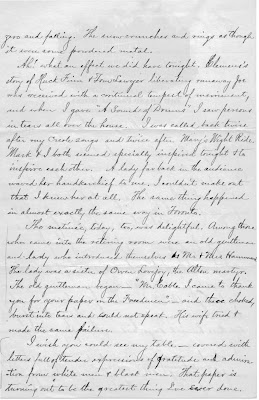 zero and falling. The snow crunches and rings as though
it were some powdered metal.
Ah! what an effect we did have tonight. Clemens's
story of Huck Finn & Tom Sawyer liberating runaway Joe
was received with a continual tempest of merriment,
and when I gave "A Sound of Drums" I saw persons
in tears all over the house. I was called back twice
after my Creole songs and twice after Mary's Night Ride.
Mark & I both seemed specially inspired tonight & to
inspire each other. A lady far back in the audience
waved her handkerchief to me. I couldn't make out
that I knew her at all. The same thing happened
in almost exactly the same way in Toronto.
The matinée, today, too, was delightful. Among those
who came into the retiring room were an old gentleman
and lady who introduced themselves as Mr & Mrs Hammond
His lady was a sister of Owen Lovejoy, the Alton martyr.
The old gentleman began — "Mr. Cable I came to thank
you for your paper in the Freedmen" — and there choked,
burst into tears and could not speak. His wife tried &
made the same failure.
I wish you could see my table — covered with
letters full of tender expressions of gratitude and admira-
tion from white men & black men. That paper is
turning out to be the greatest thing I've ever done.